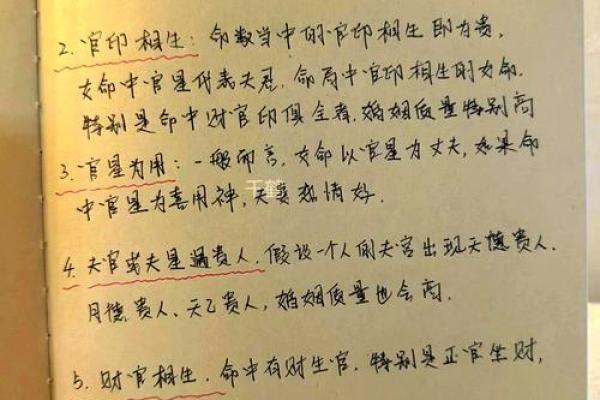 2. 官印相生：命数当中的官印相生即为贵，
女命中官星代表夫君，命局中官印相生的女命，
特别是命中财官印俱全者，婚姻质量特别高
3. 官星为用：一般而言，女命以官星为丈夫，如果命
中官星为喜用神，夫妻感情好．
千鹤
4. 夫宫或夫星遇贵人．假设一个人的夫宫出现天德贵人．
月德贵人、天乙贵人，婚姻质量也会高．
5. 财官相生．命中有财生官．特别是正官坐财，